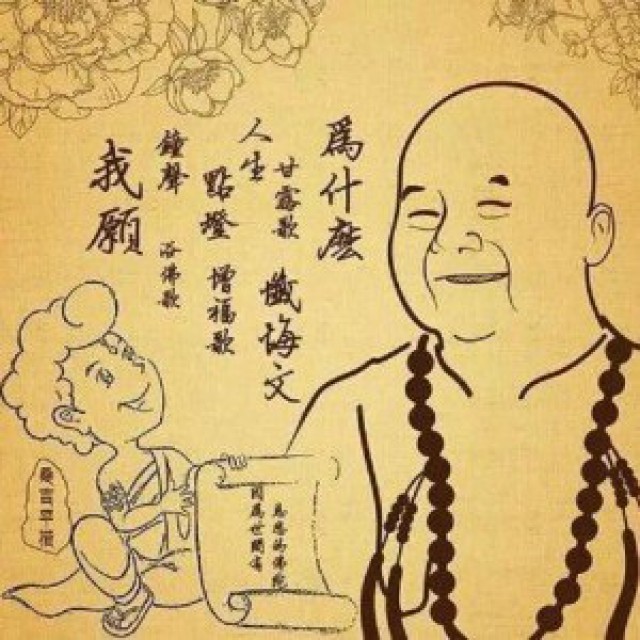 爲什麽
甘露歌
懺悔文
人生
點燈
增福歌
鐘聲
浴佛歌
我願